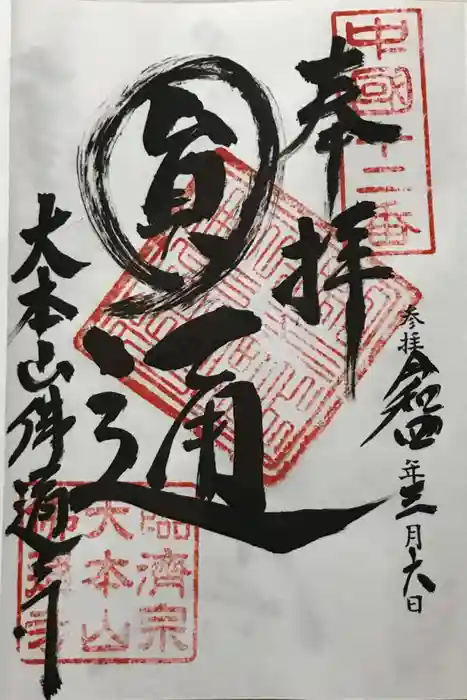 中國十二番
奉拝
参拝 令和四年三月十六日
圓通
大本山佛通寺
臨濟宗
大本山
佛通寺